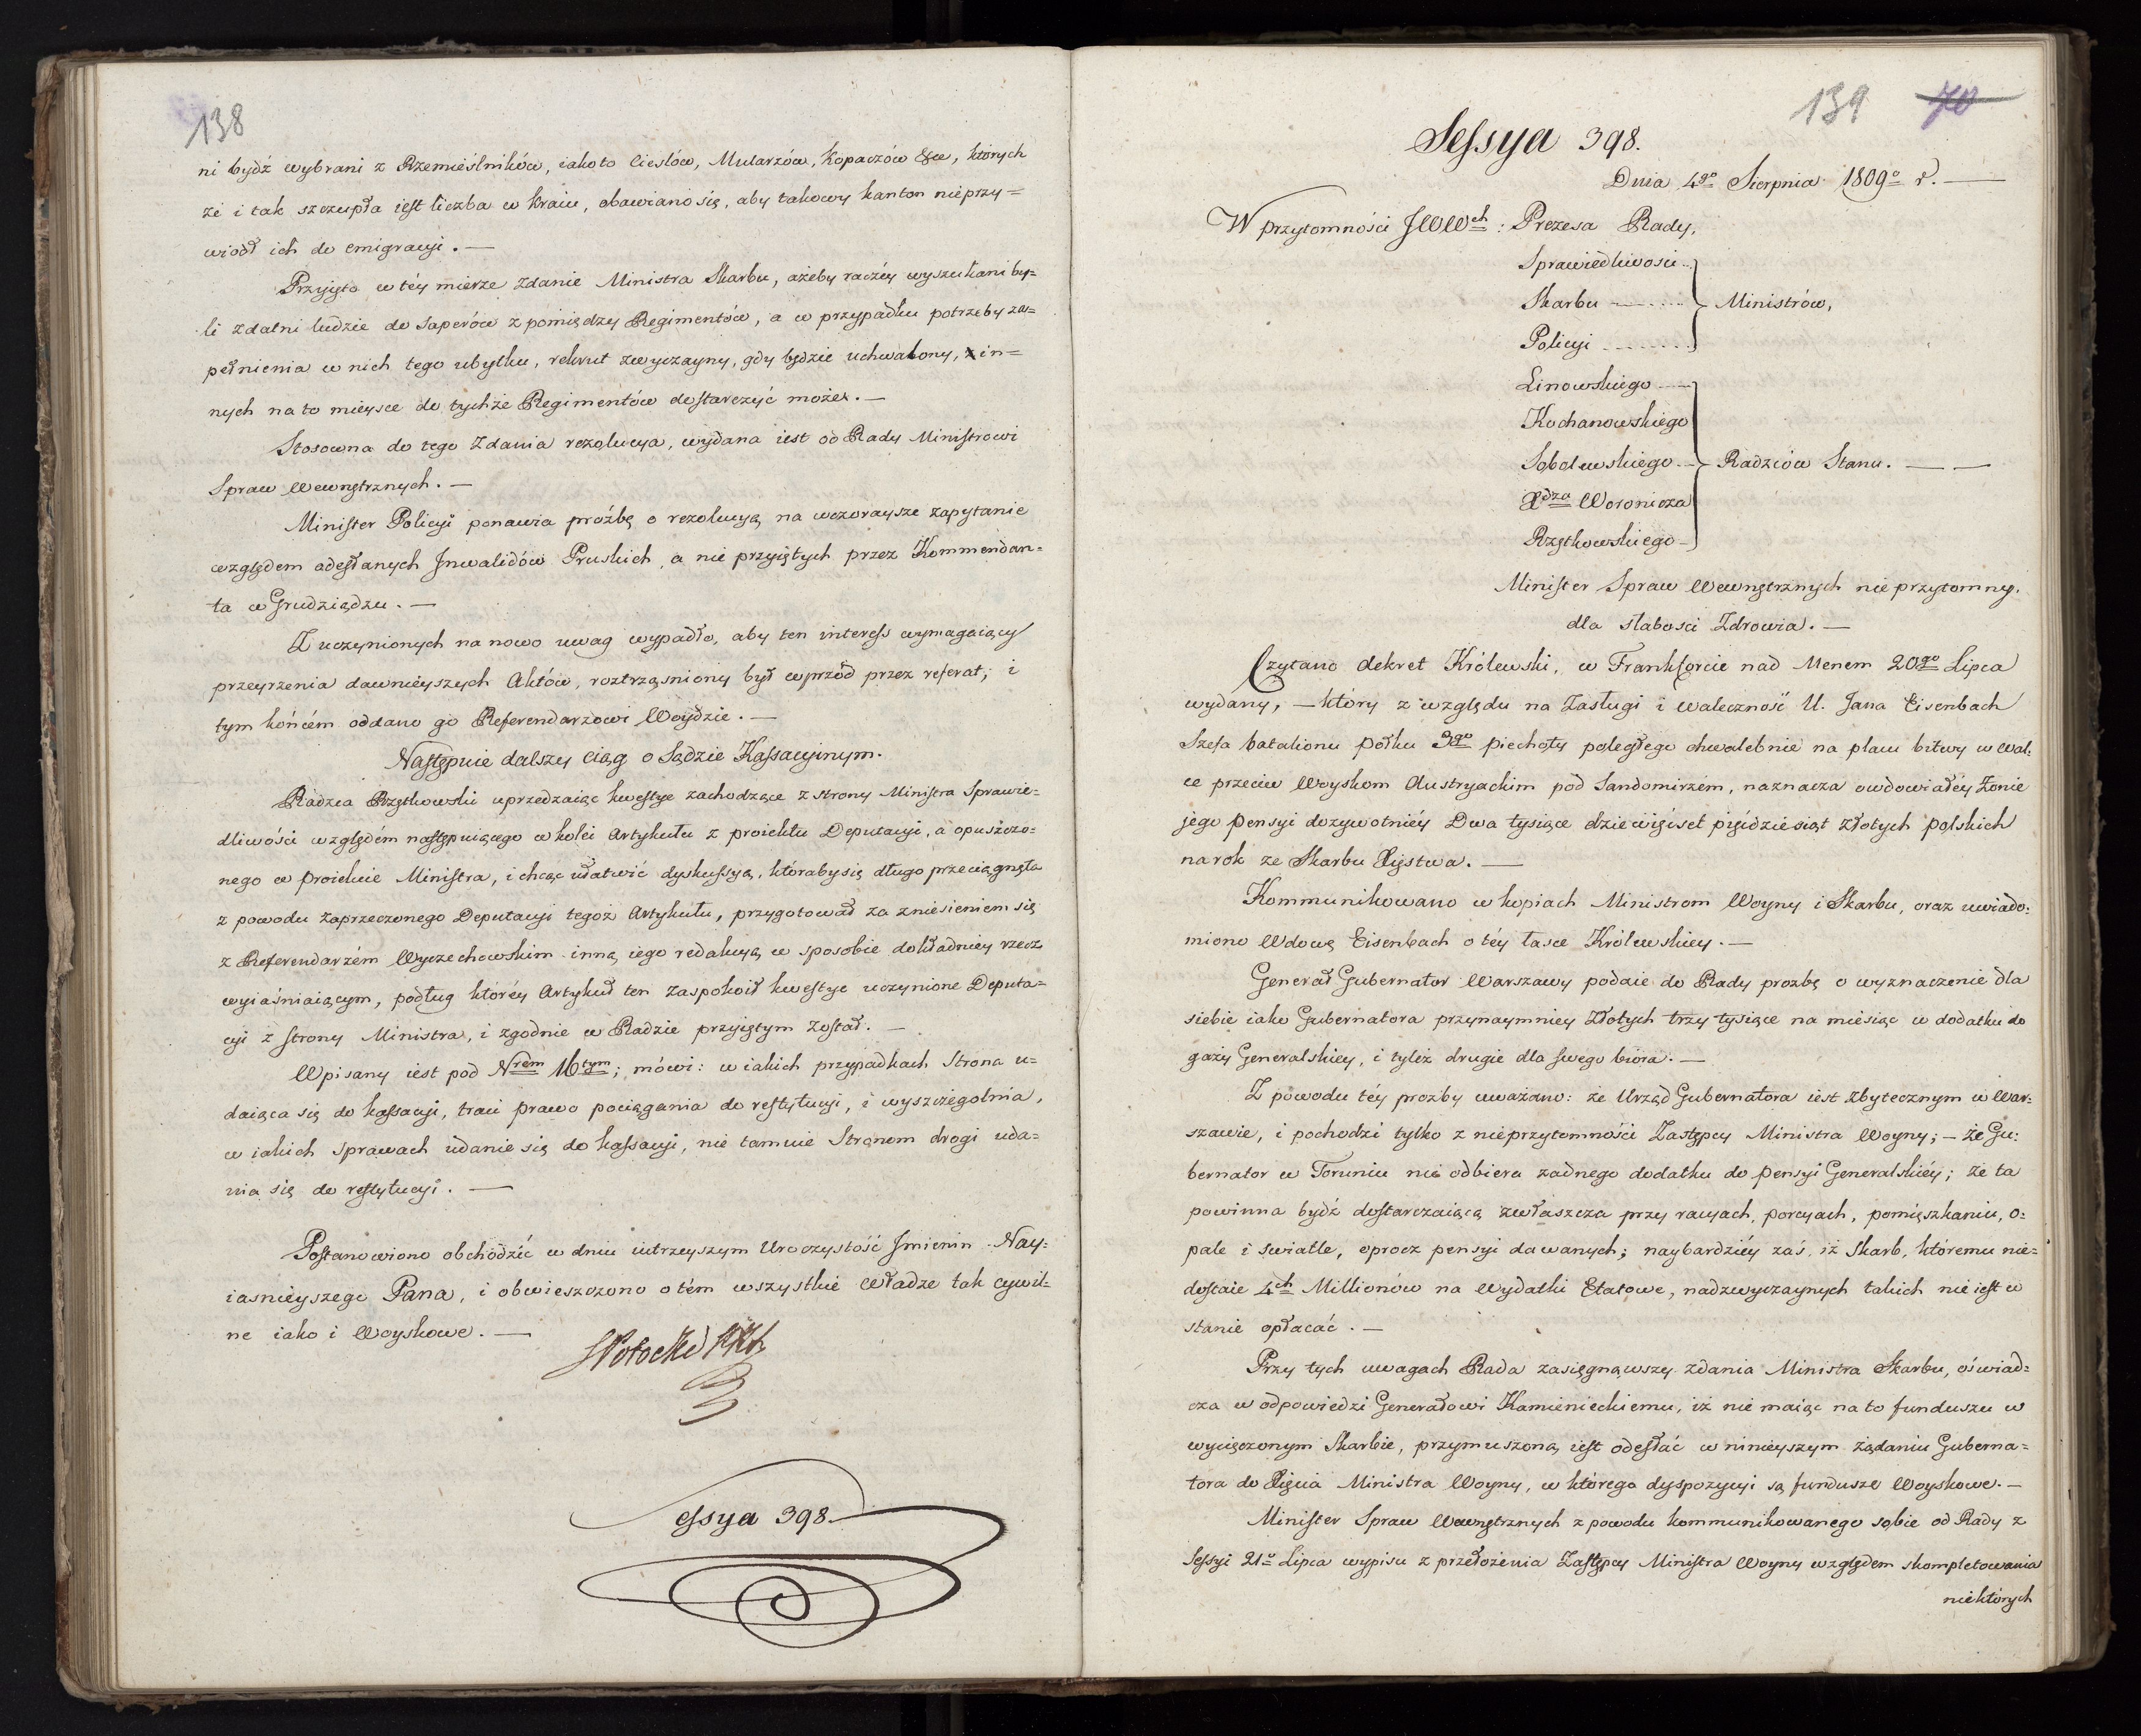 138
ni bydź wybrani z Rzemieślników, iakoto Cieslów, Mularzów, Kopaczów &ce, których
że i tak szczupła iest liczba w kraiu, obawiano się, aby takowy kanton nieprzy=
wiodł ich do emigracyi. —
Przyięto w téy mierze zdanie Ministra Skarbu, ażeby raczéy wyszukani by=
li zdatni ludzie do Saperów z pomiędzy Regimentów, a w przypadku potrzeby za=
pełnienia w nich tego ubytku, rekrut zwyczayny, gdy będzie uchwalony, in=
nych na to mieysce do tychże Regimentów dostarczyć może. —
Stosowna do tego zdania rezolucya, wydana iest od Rady Ministrowi
Spraw Wewnętrznych. —
Minister Policyi ponawia proźbę o rezolucyą na wczoraysze zapytanie
względem odesłanych Inwalidów Pruskich, a nie przyiętych przez Kommendan=
ta w Grudziądzu. —
Z uczynionych na nowo uwag wypadło, aby ten interess wymagaiący
przeyrzenia dawnieyszych Aktów, roztrząsniony był wprzód przez referat; i
tym końcem oddano go Referendarzowi Woydzie. —
Następnie dalszy ciąg o Sądzie Kassacyinym.
Radzca Rzętkowski uprzedzaiąc kwestye zachodzące z strony Ministra Sprawie=
dliwości względem następuiącego w kolei Artykułu z proiektu Deputacyi, a opuszczo=
nego w proiekcie Ministra, i chcąc ułatwić dyskussyą, któraby się długo przeciągnęła
z powodu zaprzeczonego Deputacyi tegoż Artykułu, przygotował za zniesieniem się
z Referendarzem Wyczechowskim inną iego redakcyą w sposobie dokładniey rzecz
wyiaśniaiącym, podług któréy Artykuł ten zaspokoił kwestye uczynione Deputa=
cyi z strony Ministra, i zgodnie w Radzie przyiętym został. —
Wpisany iest pod Nrem 16tym; mówi: w iakich przypadkach Strona u=
daiąca się do kassacyi, traci prawo pociągania do restytucyi, i wyszczególnia,
w iakich sprawach udanie się do kassacyi, nie tamuie Stronom drogi uda=
nia się do restytucyi. —
Postanowiono obchodzić w dniu iutrzeyszym Uroczystość Jmienin Nay=
iasnieyszego Pana, i obwieszczono o tém wszystkie Władze tak cywil=
ne iako i Woyskowe. —
SPotocki
Sessya 398.
139 70
Sessya 398.
Dnia 4go Sierpnia 1809o r. —
W przytomności JWWch: Prezesa Rady,
Sprawiedliwości
Skarbu Ministrów,
Policyi
Linowskiego
Kochanowskiego
Sobolewskiego Radzców Stanu. —
Xdza Woronicza
Rzętkowskiego
Minister Spraw Wewnętrznych nieprzytomny,
dla słabosci Zdrowia. —
Czytano dekret Królewski, w Frankforcie nad Menem 20go Lipca
wydany, — który z względu na Zasługi i waleczność U. Jana Eisenbach
Szefa batalionu półku 3go piechoty poległego chwalebnie na placu bitwy w wal=
ce przeciw Woyskom Austryackim pod Sandomirzem, naznacza owdowiałéy Żonie
jego pensyi dożywotniéy Dwa tysiące dziewięcset pięćdziesiąt złotych polskich
na rok ze Skarbu Xięstwa. —
Kommunikowano w kopiach Ministrom Woyny i Skarbu, oraz uwiado=
miono Wdowę Eisenbach o téy łasce Królewskiey. —
Generał Gubernator Warszawy podaie do Rady prozbę o wyznaczenie dla
siebie iako Gubernatora przynaymniey Złotych trzy tysiące na miesiąc w dodatku do
gaży Generalskiey, i tyleż drugie dla swego bióra. —
Z powodu téy prozby uważano: że Urząd Gubernatora iest zbytecznym w War=
szawie, i pochodzi tylko z nieprzytomności Zastępcy Ministra Woyny; — że Gu=
bernator w Toruniu nie odbiera żadnego dodatku do pensyi Generalskiéy; że ta
powinna bydź dostarczaiącą zwłaszcza przy racyach, porcyach, pomięszkaniu, o=
pale i swiatle, oprocz pensyi dawanych; naybardziéy zaś, iż Skarb, któremu nie=
dostaie 4ch Millionów na Wydatki Etatowe, nadzwyczaynych takich nie iest w
stanie opłacać. —
Przy tych uwagach Rada zasięgnąwszy zdania Ministra Skarbu, oświad=
cza w odpowiedzi Generałowi Kamienieckiemu, iż nie maiąc na to funduszu w
wycięczonym Skarbie, przymuszoną iest odesłać w ninieyszym żądaniu Guberna=
tora do Xięcia Ministra Woyny, w którego dyspozycyi są fundusze Woyskowe. —
Minister Spraw Wewnętrznych z powodu kommunikowanego sobie od Rady z
Sessyi 21o Lipca wypisu z przełożenia Zastępcy Ministra Woyny względem skompletowania
niektórych